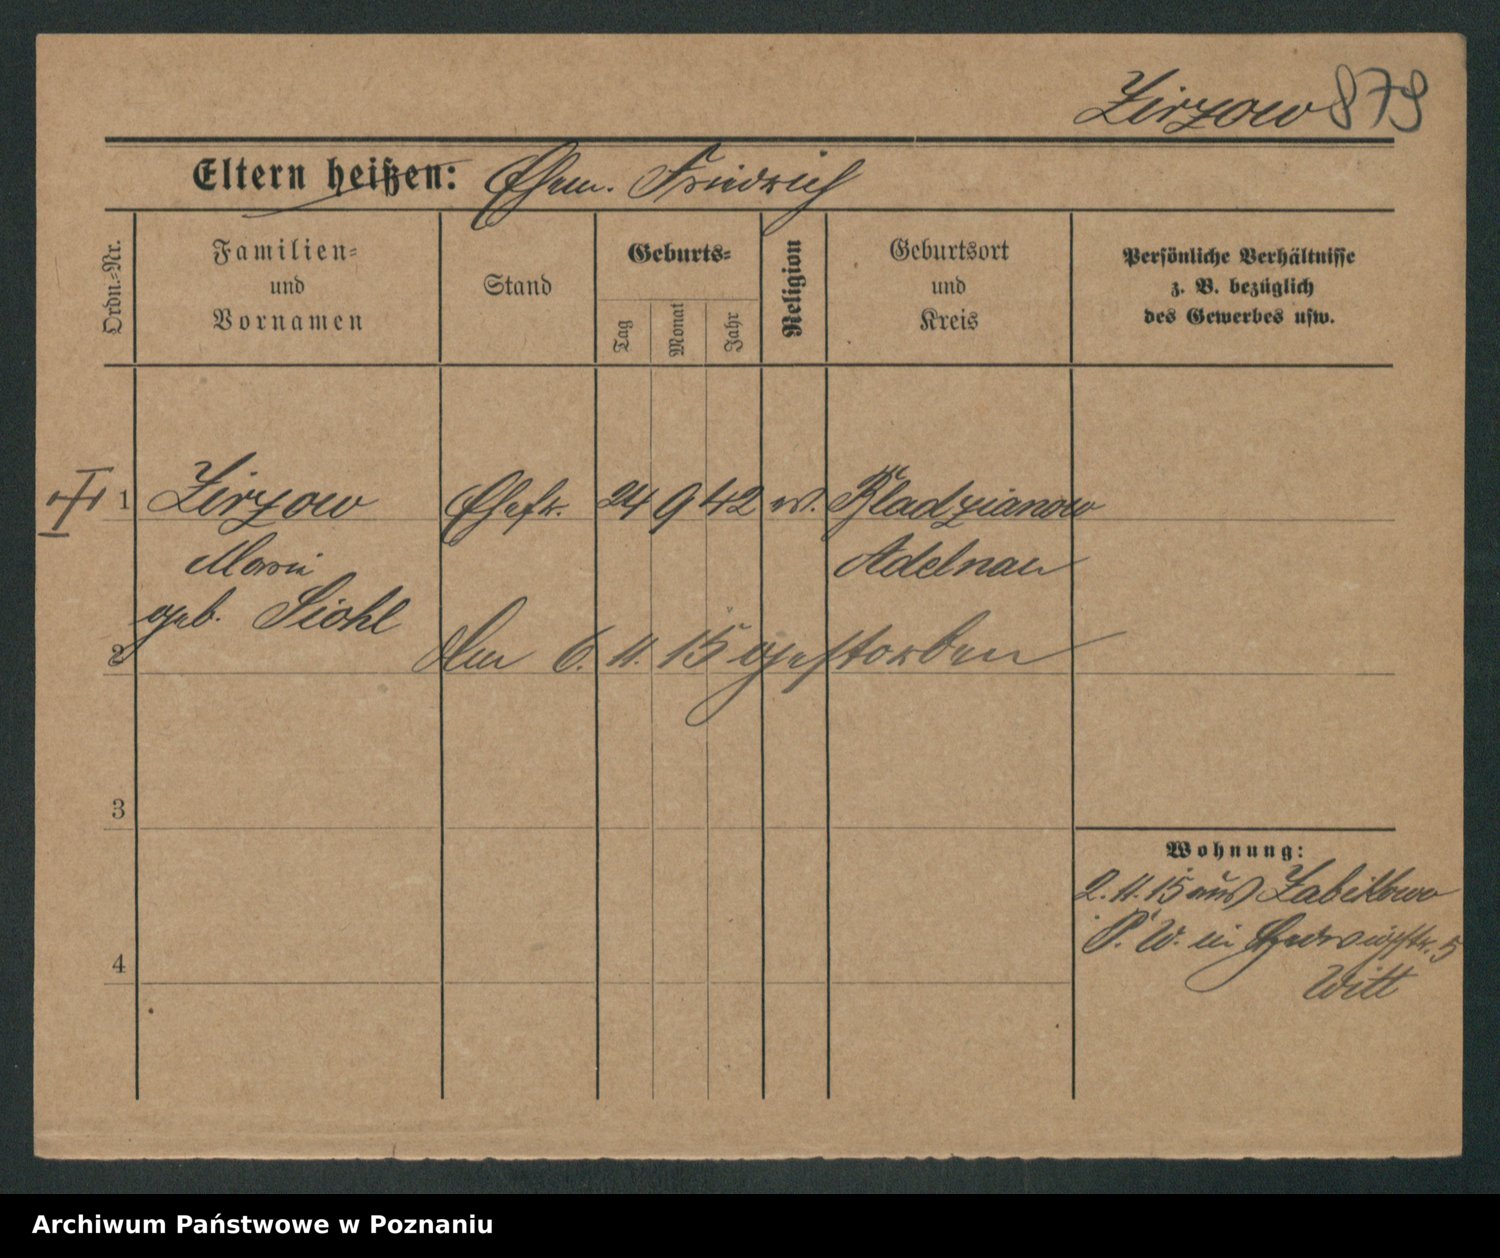 Zirzow 879
Eltern heißen: Ehem. Friedrich
Ordn.=Nr.
Familien=
und
Vornamen
Stand
Geburts=
Tag
Monat
Jahr
Religion
Geburtsort
und
Kreis
Persönliche Verhältnisse
z. B. bezüglich
des Gewerbes usw.
1 Zirzow Ehefr. 24 9 42 Bladzianow
Marie Adelnau
geb. Siohl
2 Am 6. 11. 15 gestorben
3
Wohnung:
2. 11. 15 aus Zabikowo
P. W. in Hedwigstr. 5
4
Witt
Archiwum Państwowe w Poznaniu